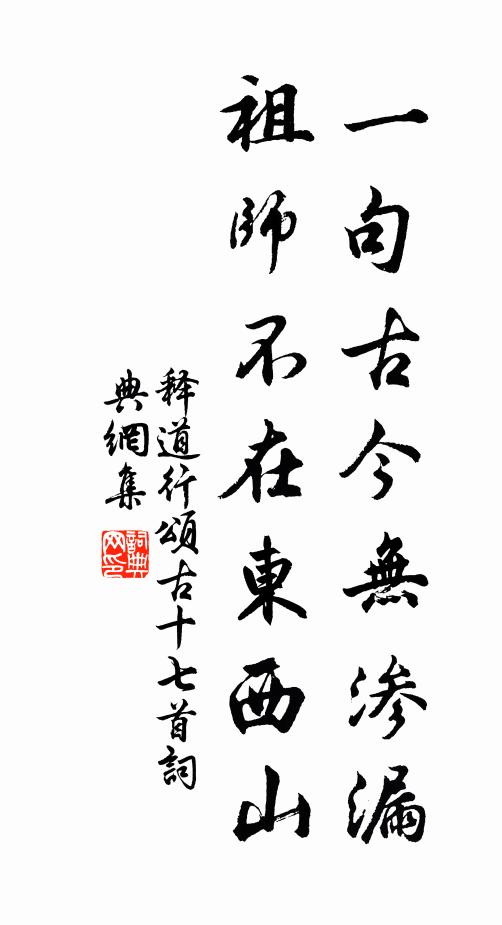 一句古今無渗漏
祖師不在東西山
释道行頌古十七首詞
典網集
詞典
网印